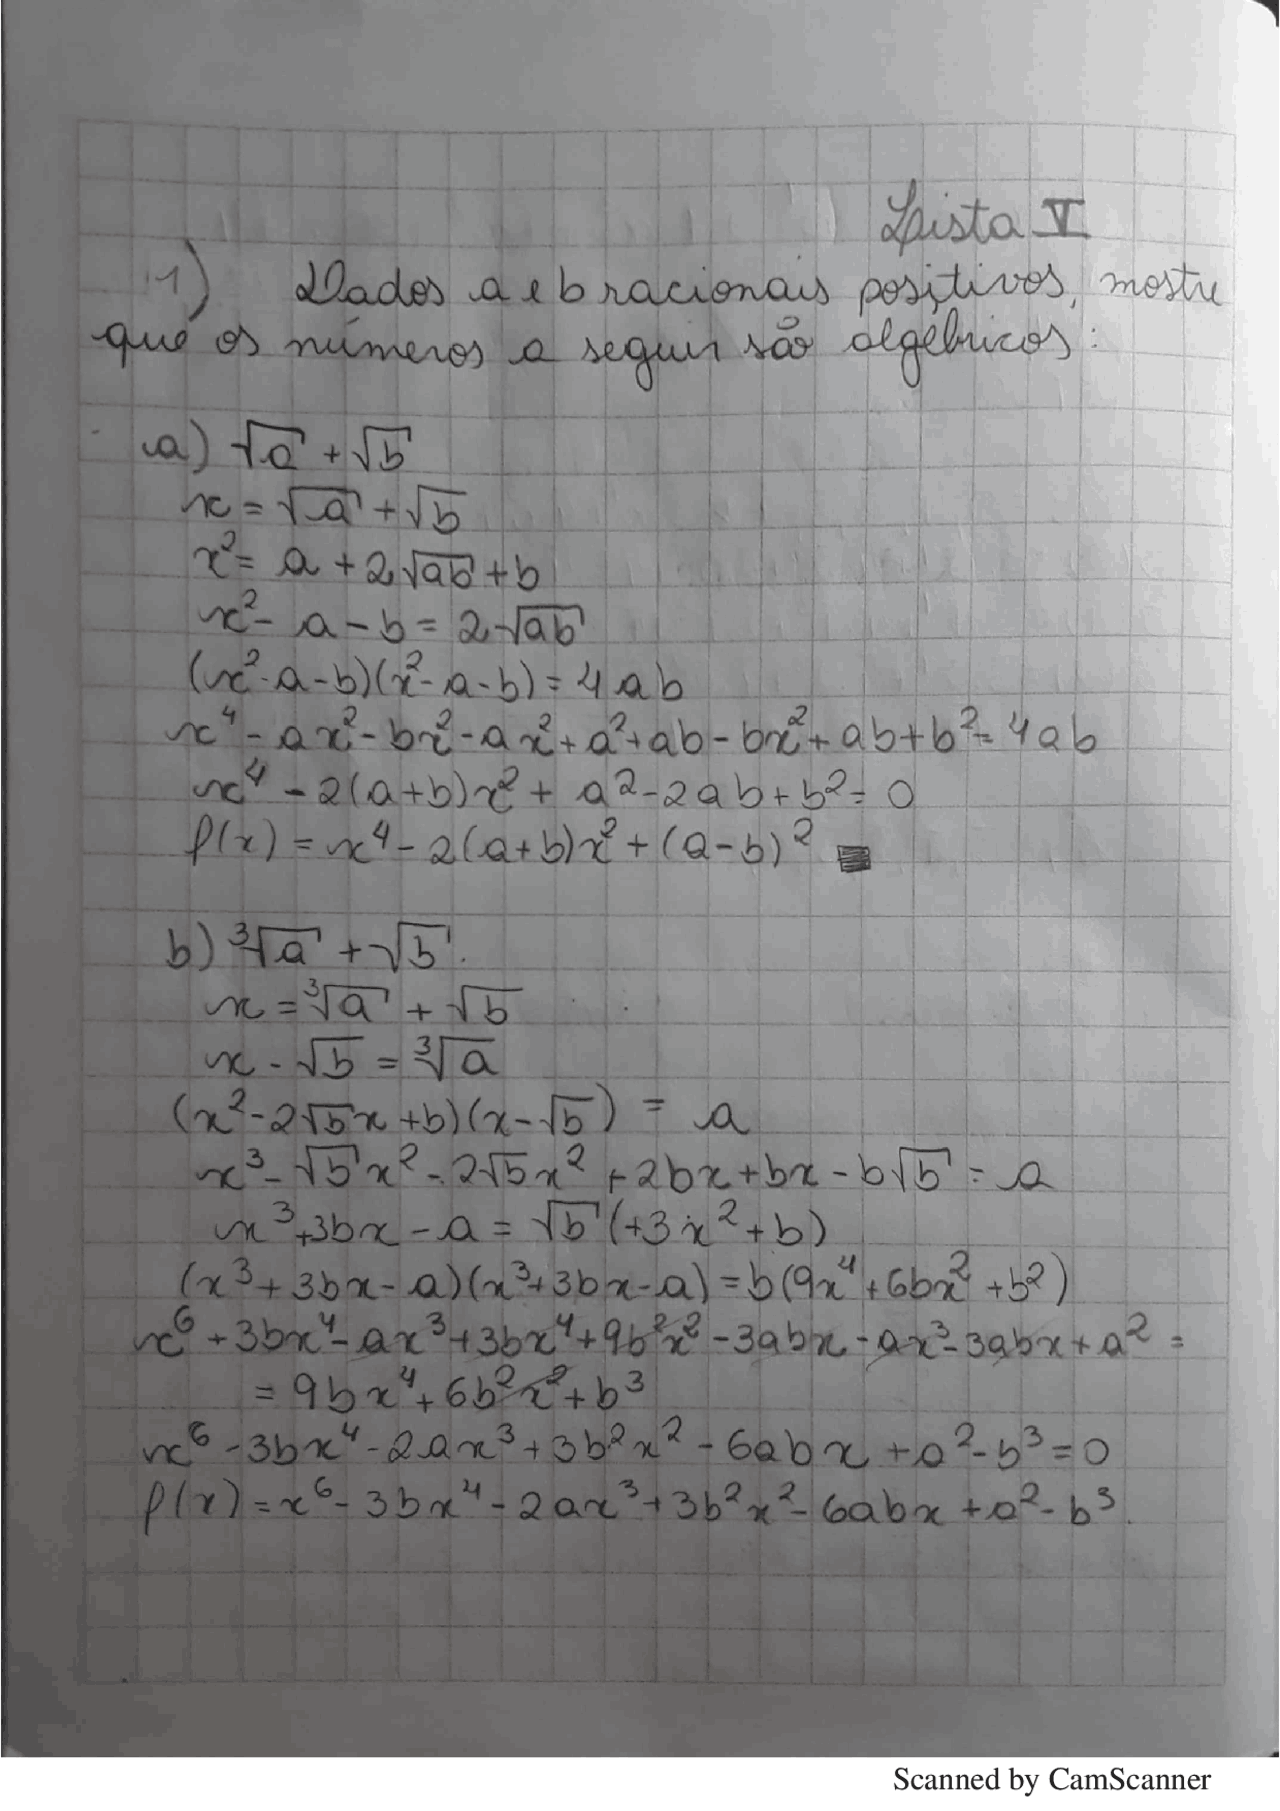 Lista V
1) Dados a e b racionais positivos, mostre
que os números a seguir são algébricos:
a) √a + √b
x = √a + √b
x² = a + 2√ab + b
x² - a - b = 2√ab
(x² - a - b)(x² - a - b) = 4ab
x⁴ - ax² - bx² - ax² + a² + ab - bx² + ab + b² = 4ab
x⁴ - 2(a+b)x² + a² - 2ab + b² = 0
f(x) = x⁴ - 2(a+b)x² + (a-b)²
b) ³√a + √b.
x = ³√a + √b
x - √b = ³√a
(x² - 2√b x + b)(x - √b) = a
x³ - √b x² - 2√b x² + 2bx + bx - b√b = a
x³ + 3bx - a = √b (+3x² + b)
(x³ + 3bx - a)(x³ + 3bx - a) = b(9x⁴ + 6bx² + b²)
x⁶ + 3bx⁴ - ax³ + 3bx⁴ + 9b²x² - 3abx - ax³ - 3abx + a² =
= 9bx⁴ + 6b²x² + b³
x⁶ - 3bx⁴ - 2ax³ + 3b²x² - 6abx + a² - b³ = 0
f(x) = x⁶ - 3bx⁴ - 2ax³ + 3b²x² - 6abx + a² - b³.
Scanned by CamScanner